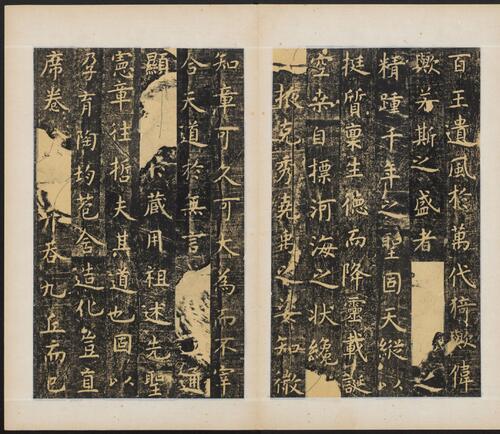 百王遺風於萬代猗歟偉
歟若斯之盛者之
精踵千年之聖固天縱以
挺質稟生德而降靈載誕
空桑自標河海之狀纔
掖克秀堯禹之姿知微
知章可久可大為而不宰
合天道於無言通
顯於藏用祖述先聖
憲章往哲夫其道也固以
孕育陶均苞含造化豈直
席卷吞九丘而已